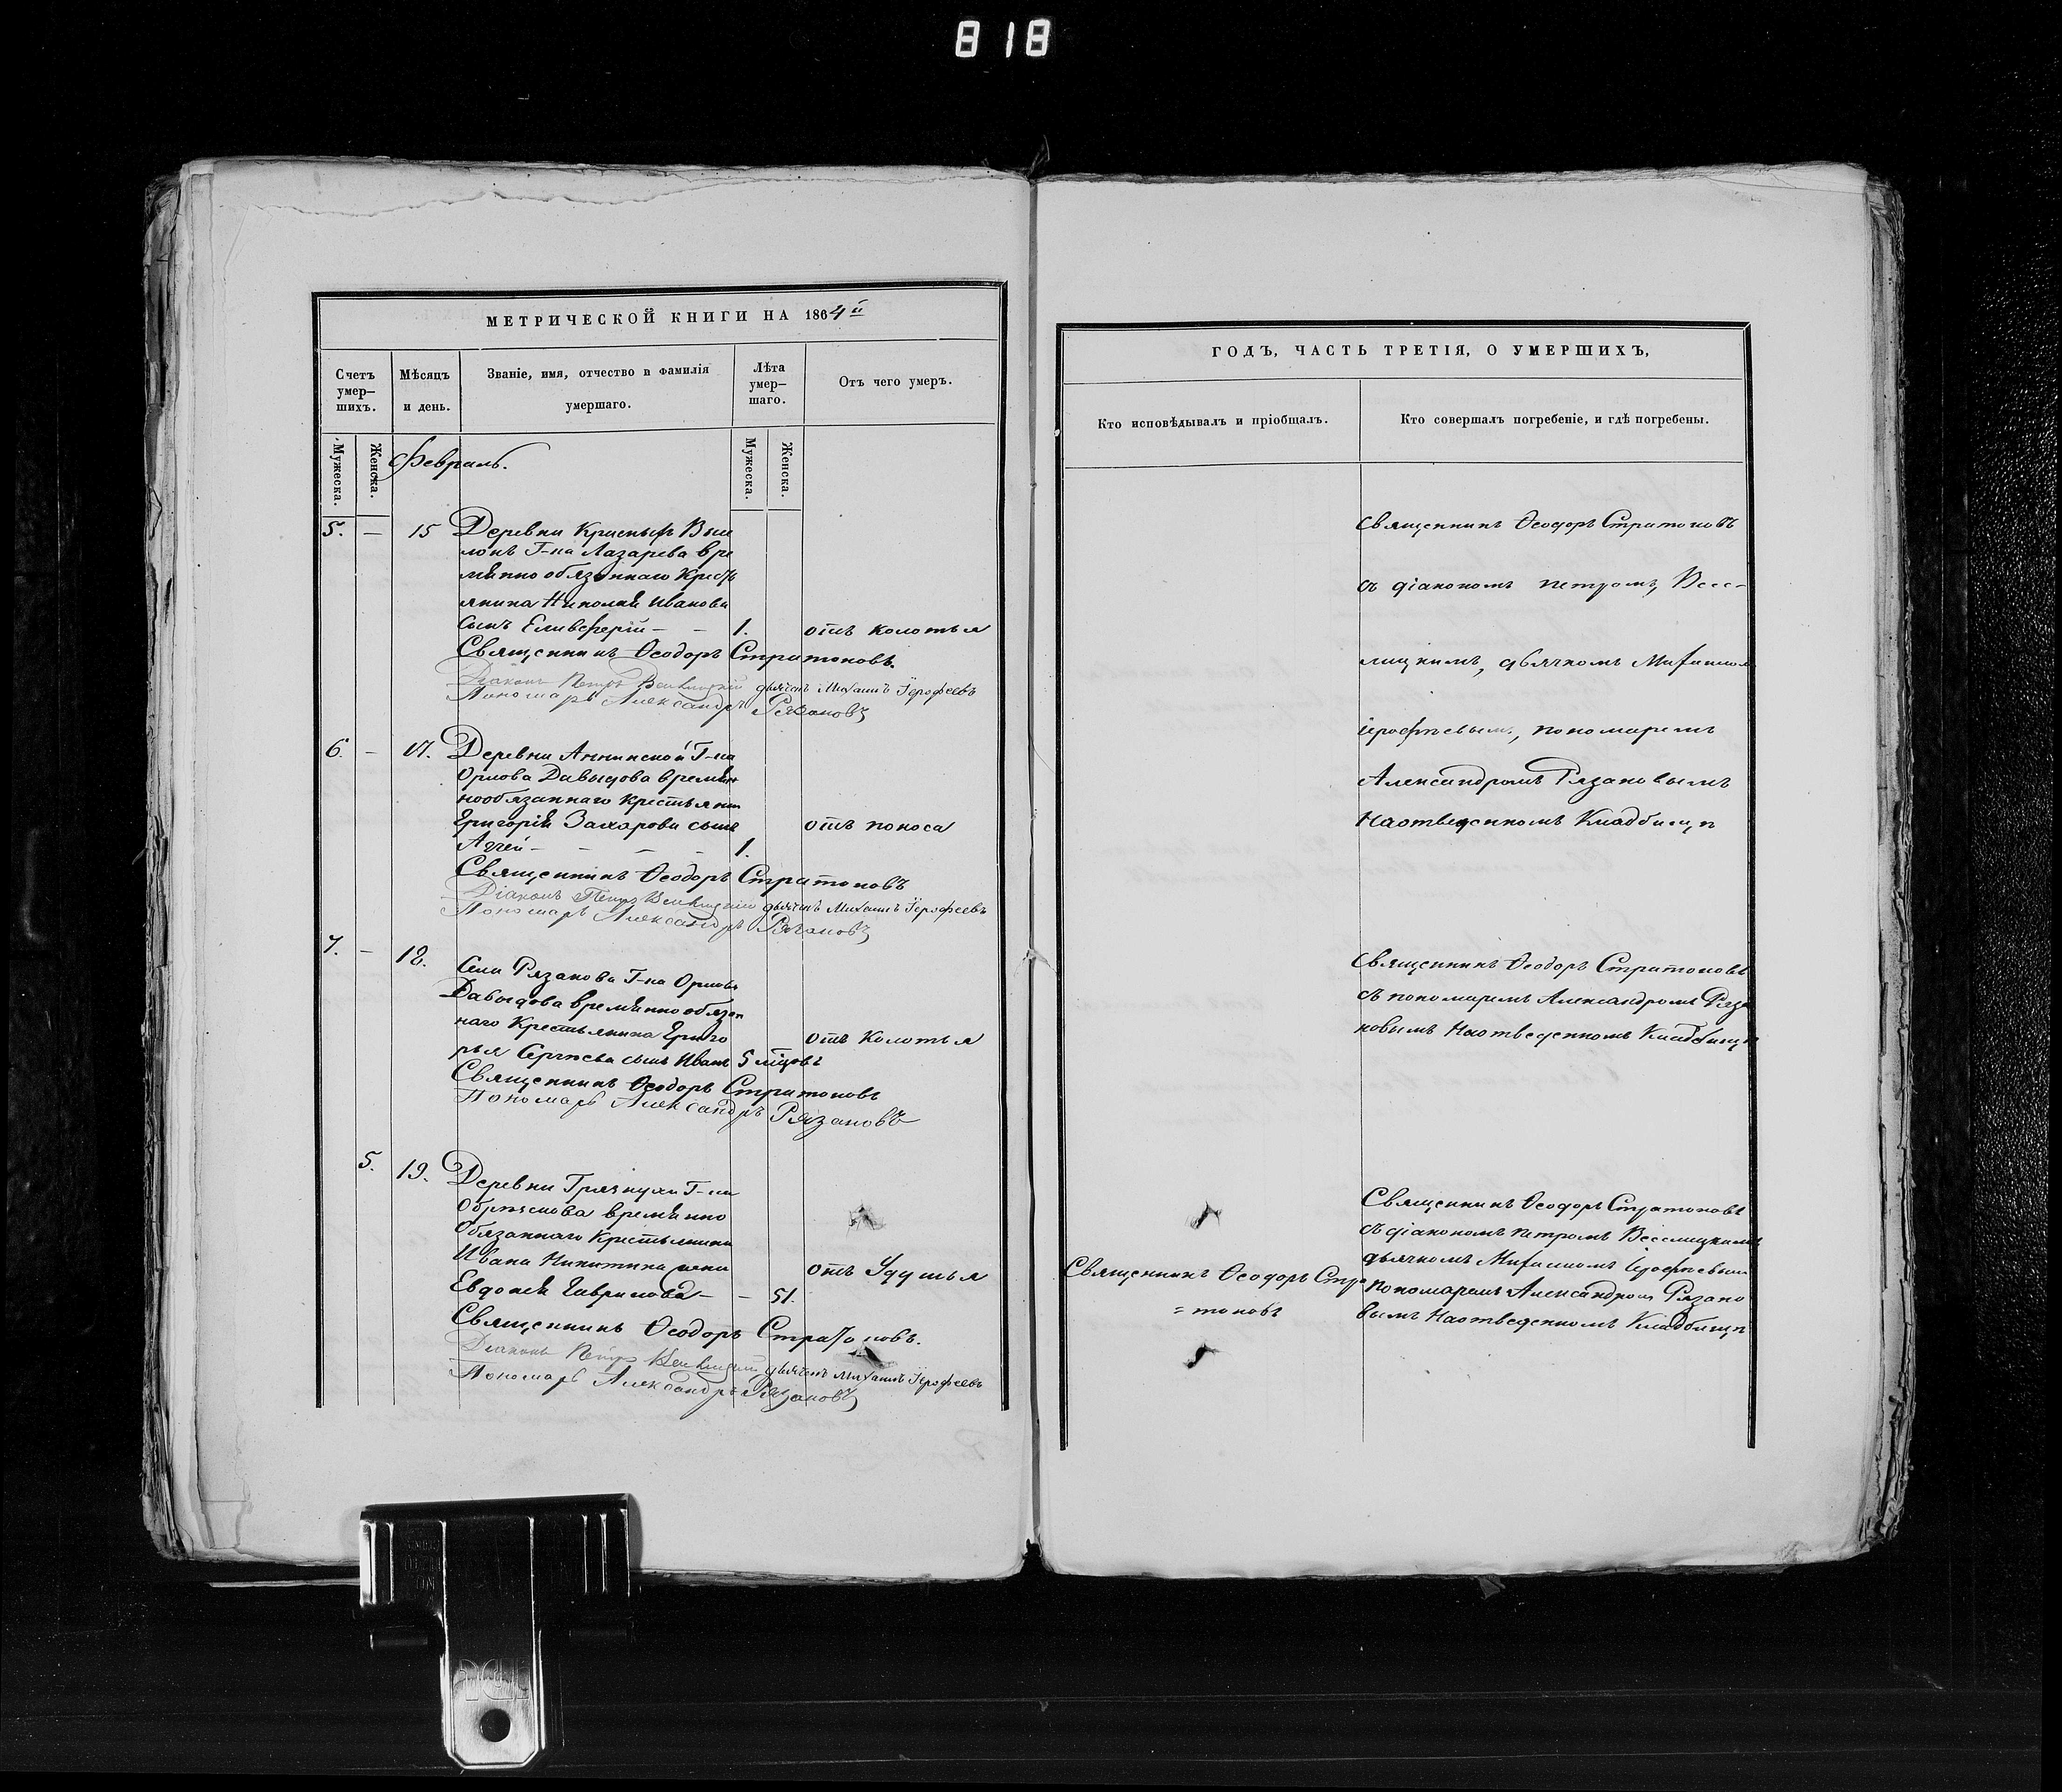 818
МЕТРИЧЕСКОЙ КНИГИ НА 1864й
Счетъ умер–шихъ.
Мѣсяцъ и день.
Званіе, имя, отчество и фамилія умершаго.
Лѣта умер–шаго.
Отъ чего умеръ.
Мужеска.
Женска.
Февраль.
Мужеска.
Женска.
5. – 15 Деревни Красныхъ Высе
локъ Г-на Лазарева вре
мянно обязаннаго крестъ
янина Николая Иванова
сынъ Еливферій – – 1. отъ колотья
Священникъ Ѳеодоръ Стратоновъ.
Діаконъ Петръ дьячекъ Михаилъ Іерофеевъ
Пономарь Александръ Рязановъ
6. – 17. Деревни Аннинской Г-на
Орлова Давыдова времян
нообязаннаго крестьянина
Григорія Захарова сынъ отъ поноса
Аггей – – – – 1.
Священникъ Ѳеодоръ Стратоновъ
Діаконъ Петръ дьячекъ Михаилъ Іерофеевъ
Пономарь Александръ Рязановъ
7. – 18. Села Рязанова Г-на Орлова
Давыдова времянно обязан
наго Крестьянина Григо отъ Колотья
рья Сергѣева сынъ Иванъ 5 мцовъ
Священникъ Ѳеодоръ Стратоновъ
Пономарь Александръ Рязановъ
5. 19. Деревни Грячнухи Г-на
Обрѣскова времянно
Обязаннаго Крестьянина
Ивана Никитина жена отъ Удушья
Евдокія Гаврилова – – 51.
Священникъ Ѳеодоръ Стратоновъ.
Діаконъ Петръ дьячекъ Михаилъ Іерофеевъ
Пономарь Александръ Рязановъ
ГОДЪ, ЧАСТЬ ТРЕТІЯ, О УМЕРШИХЪ,
Кто исповѣдывалъ и пріобщалъ.
Кто совершалъ погребеніе, и гдѣ погребены.
Священникъ Ѳеодоръ Стратоновъ
съ діакономъ Петромъ Весе-
лицкимъ, дьячкомъ Михаиломъ
Іерофѣевымъ, пономаремъ
Александромъ Рязановымъ
На отведенномъ Кладбищѣ
Священникъ Ѳеодоръ Стратоновъ
съ пономаремъ Александромъ Ряза
новымъ На отведенномъ Кладбищѣ
Священникъ Ѳеодоръ Стра
=тоновъ
Священникъ Ѳеодоръ Стратоновъ
съ діакономъ Петромъ Веселицкимъ
дьячкомъ Михаиломъ Іерофѣевымъ
Пономаремъ Александромъ Рязано
вымъ На отведенномъ Кладбищѣ